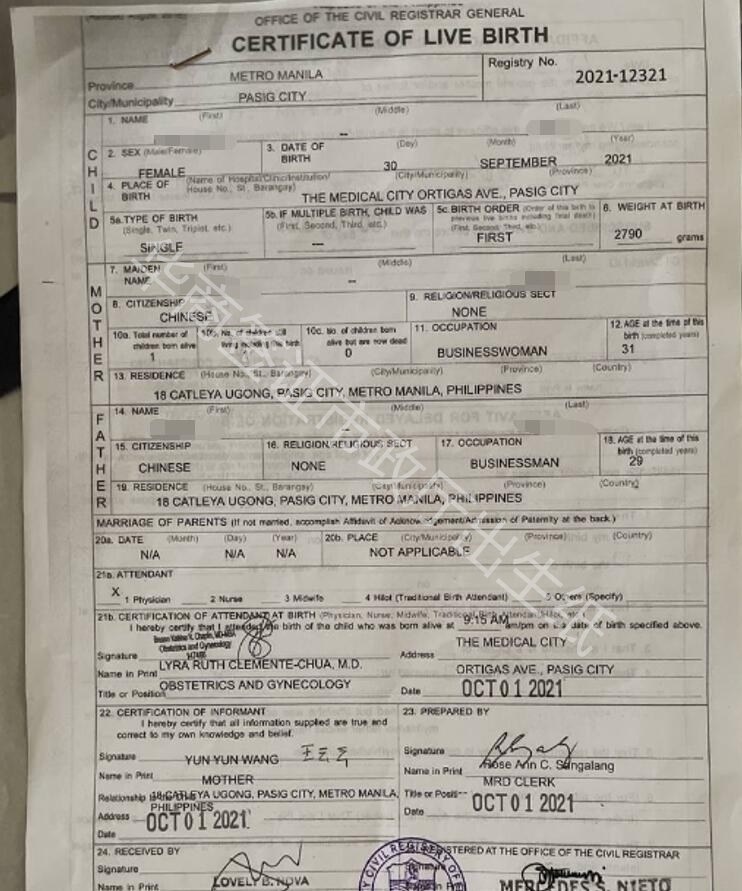 OFFICE OF THE CIVIL REGISTRAR GENERAL
CERTIFICATE OF LIVE BIRTH
Province METRO MANILA
Registry No. 2021-12321
City/Municipality PASIG CITY
CHILD
1. NAME (First) (Middle) (Last)
--
2. SEX (Male/Female) FEMALE
3. DATE OF BIRTH (Day) (Month) (Year) 30 SEPTEMBER 2021
4. PLACE OF BIRTH (Name of Hospital/Clinic/Institution/ House No., St., Barangay) (City/Municipality) (Province)
THE MEDICAL CITY ORTIGAS AVE., PASIG CITY
5a. TYPE OF BIRTH (Single, Twin, Triplet, etc.) SINGLE
5b. IF MULTIPLE BIRTH, CHILD WAS (First, Second, Third, etc.) --
5c. BIRTH ORDER (Order of this birth to previous live births including fetal death) (First, Second, Third, etc.) FIRST
6. WEIGHT AT BIRTH 2790 grams
MOTHER
7. MAIDEN NAME (First) (Middle) (Last)
--
8. CITIZENSHIP CHINESE
9. RELIGION/RELIGIOUS SECT NONE
10a. Total number of children born alive 1
10b. No. of children still living including this birth
10c. No. of children born alive but are now dead 0
11. OCCUPATION BUSINESSWOMAN
12. AGE at the time of this birth (completed years) 31
13. RESIDENCE (House No., St., Barangay) (City/Municipality) (Province) (Country)
18 CATLEYA UGONG, PASIG CITY, METRO MANILA, PHILIPPINES
FATHER
14. NAME (First) (Middle) (Last)
15. CITIZENSHIP CHINESE
16. RELIGION/RELIGIOUS SECT NONE
17. OCCUPATION BUSINESSMAN
18. AGE at the time of this birth (completed years) 29
19. RESIDENCE (House No., St., Barangay) (City/Municipality) (Province) (Country)
18 CATLEYA UGONG, PASIG CITY, METRO MANILA, PHILIPPINES
MARRIAGE OF PARENTS (If not married, accomplish Affidavit of Acknowledgement/Admission of Paternity at the back.)
20a. DATE (Month) (Day) (Year) N/A N/A N/A
20b. PLACE (City/Municipality) (Province) (Country) NOT APPLICABLE
21a. ATTENDANT
X 1 Physician 2 Nurse 3 Midwife 4 Hilot (Traditional Birth Attendant) 5 Others (Specify)
21b. CERTIFICATION OF ATTENDANT AT BIRTH (Physician, Nurse, Midwife, Traditional Birth Attendant/Hilot, etc.)
I hereby certify that I attended the birth of the child who was born alive at 9:15 AM am/pm on the date of birth specified above.
Obstetrics and Gynecology
Signature
Address THE MEDICAL CITY
Name in Print LYRA RUTH CLEMENTE-CHUA, M.D.
ORTIGAS AVE., PASIG CITY
Title or Position OBSTETRICS AND GYNECOLOGY
Date OCT 01 2021
22. CERTIFICATION OF INFORMANT
I hereby certify that all information supplied are true and correct to my own knowledge and belief.
Signature
Name in Print YUN YUN WANG
Relationship to the Child MOTHER
Address 18 CATLEYA UGONG, PASIG CITY, METRO MANILA, PHILIPPINES
Date OCT 01 2021
23. PREPARED BY
Signature
Name in Print Rose Ann C. Sungalang
Title or Position MRD CLERK
Date OCT 01 2021
24. RECEIVED BY
Signature
Name in Print LOVELY B. NOVA
REGISTERED AT THE OFFICE OF THE CIVIL REGISTRAR
Signature
Name in Print MERCEDES S. NIETO
CIVIL REGISTRY OFFICE
华商签证市政厅出生纸